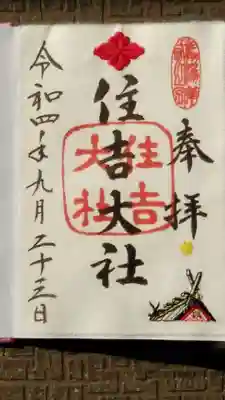 奉拝
住吉大社
住吉
大社
令和四年九月二十三日